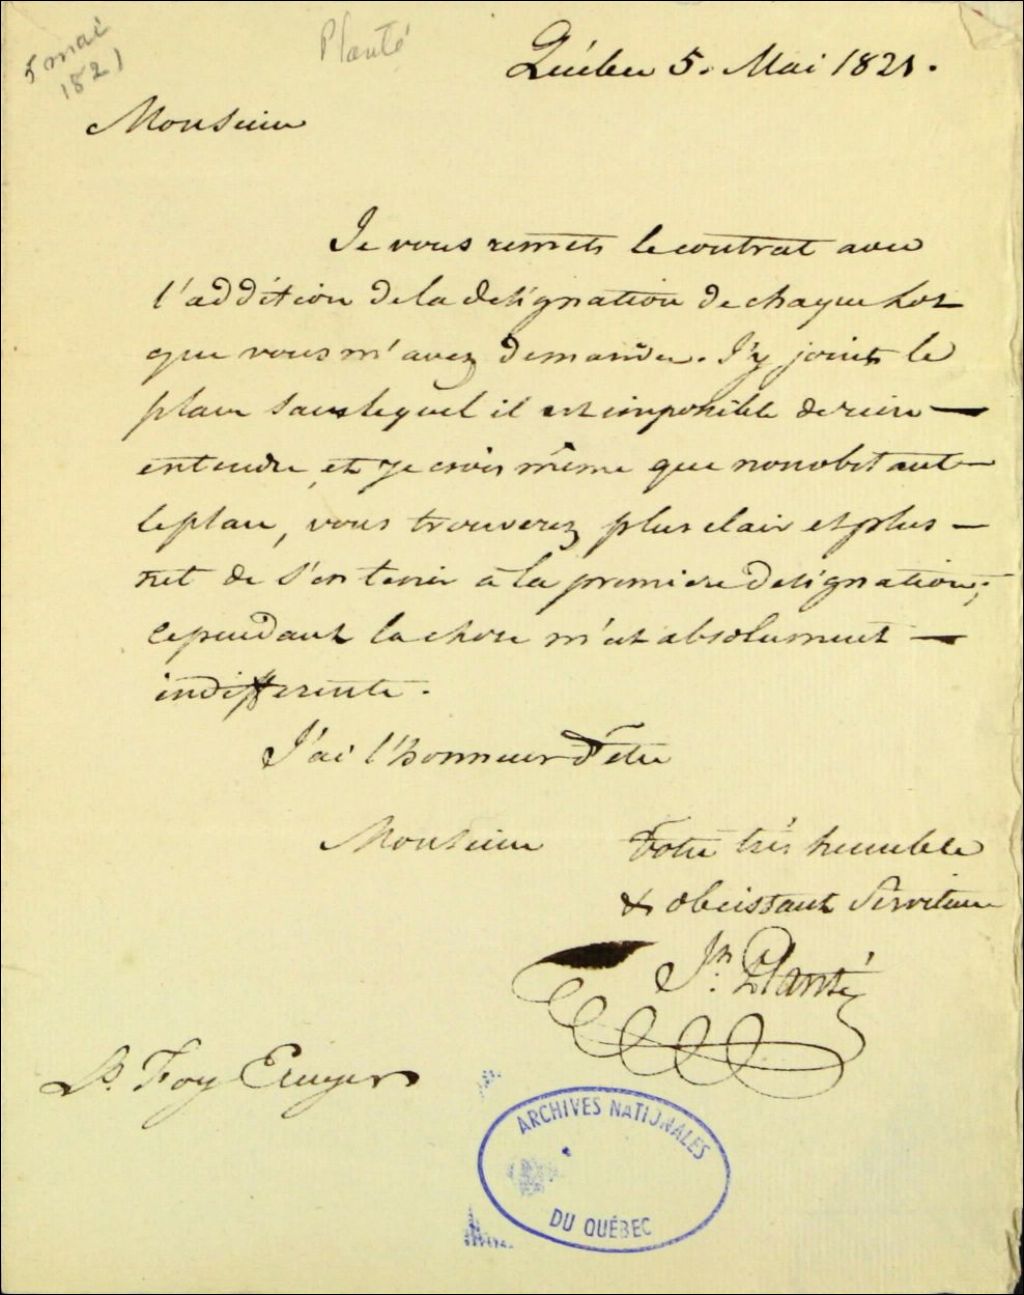 5 mai
1821
Planté
Québec 5. Mai 1821.
Monsieur
Je vous remets le contrat avec
l'addition de la désignation de chaque Lot
que vous m'avez demandée. J'y joints le
plan sans lequel il est impossible de rien
entendre, et je crois même que nonobstant
le plan, vous trouverez plus clair et plus
net de s'en tenir à la première désignation;
cependant la chose m'est absolument
indifferente.
J'ai l'honneur d'etre
Monsieur Votre très humble
& obeissant Serviteur
Jn. Planté
Ls. Foy Ecuyer
ARCHIVES NATIONALES
DU QUÉBEC